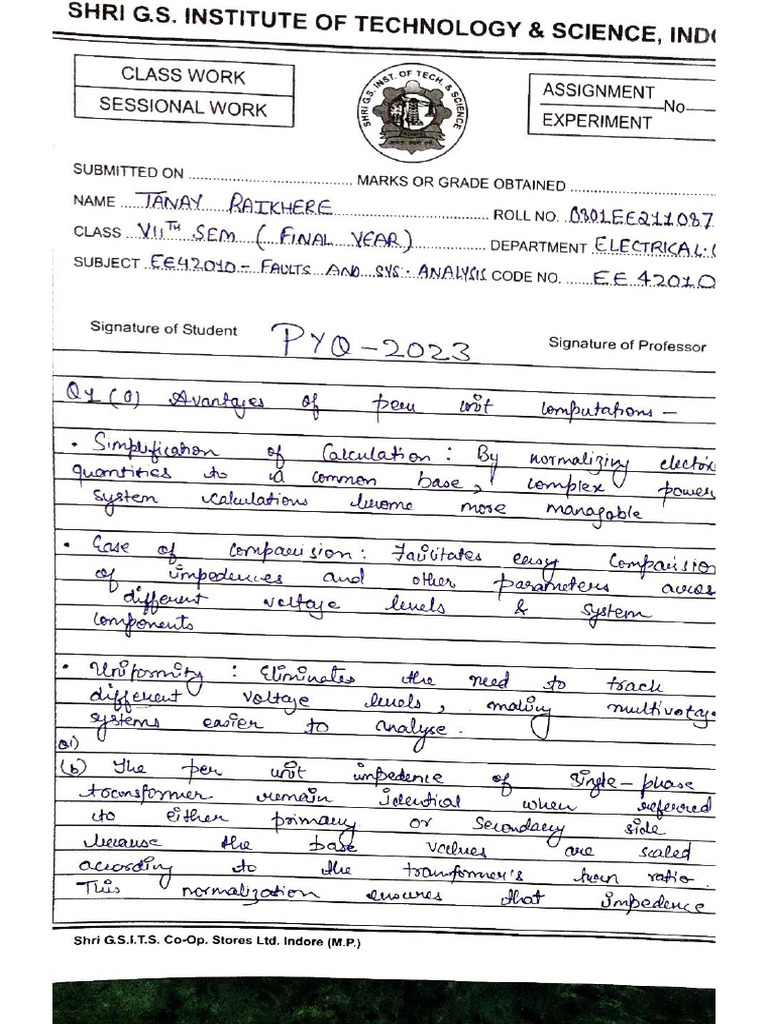 SHRI G.S. INSTITUTE OF TECHNOLOGY & SCIENCE, INDO
CLASS WORK
SESSIONAL WORK
SHRI G.S. INST. OF TECH. & SCIENCE
ASSIGNMENT
No
EXPERIMENT
SUBMITTED ON
MARKS OR GRADE OBTAINED
NAME TANAY RAIKHERE ROLL NO. 0801EE211087
CLASS VIITH SEM ( FINAL YEAR) DEPARTMENT ELECTRICAL
SUBJECT EE42010 - FAULTS AND SYS. ANALYSIS CODE NO. EE 42010
Signature of Student PYQ - 2023 Signature of Professor
Q1 (a) Avantages of peru unit computations -
• Simplification of Calculation : By normalizing electri
quantities to a common base, complex power
system calculations become more managable
• Ease of comparision : Facilitates easy Comparision
of impedences and other parameters across
different voltage levels & system
components
• Uniformity : Eliminates the need to track
different voltage levels, making multivotage
systems easier to analyse.
Q1)
(b) The per unit impedence of single-phase
transformer remain identical when referred
to either primary or secondary side
because the base values are scaled
according to the transformer's turn ratio.
This normalization ensures that impedence
Shri G.S.I.T.S. Co-Op. Stores Ltd. Indore (M.P.)